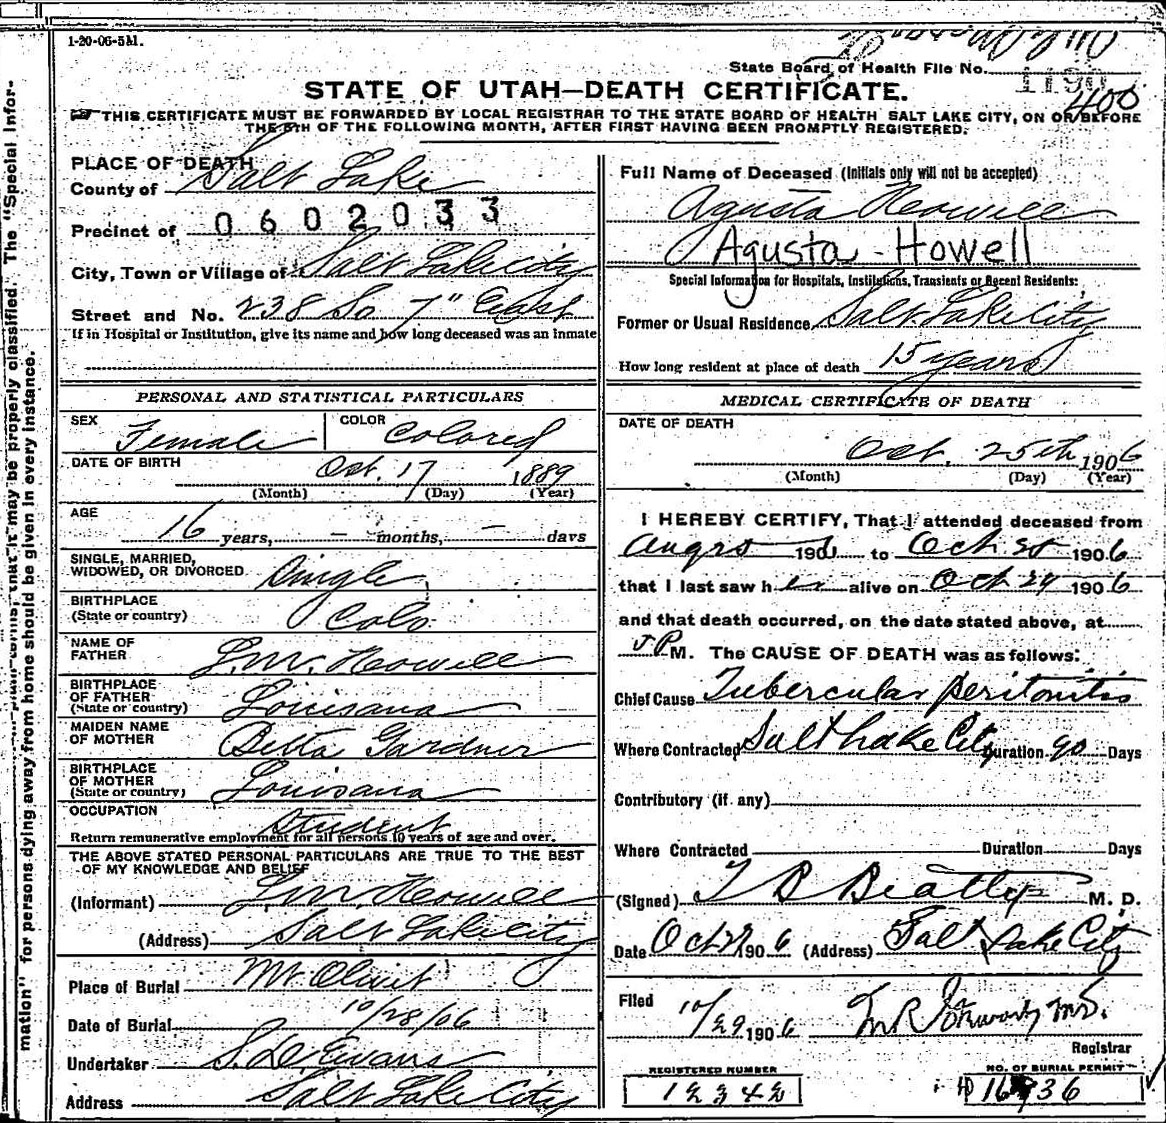 1-20-06-5M.
State Board of Health File No. 1190
400
STATE OF UTAH—DEATH CERTIFICATE.
THIS CERTIFICATE MUST BE FORWARDED BY LOCAL REGISTRAR TO THE STATE BOARD OF HEALTH SALT LAKE CITY, ON OR BEFORE
THE 5TH OF THE FOLLOWING MONTH, AFTER FIRST HAVING BEEN PROMPTLY REGISTERED.
The "Special Infor-
mation" for persons dying away from home should be given in every instance.
that it may be properly classified.
PLACE OF DEATH
County of Salt Lake
Precinct of 0602033
City, Town or Village of Salt Lake City
Street and No. 238 So 7" East
If in Hospital or Institution, give its name and how long deceased was an inmate
PERSONAL AND STATISTICAL PARTICULARS
SEX Female COLOR Colored
DATE OF BIRTH Oct. 17 1889
(Month) (Day) (Year)
AGE
16 years, — months, — days
SINGLE, MARRIED,
WIDOWED, OR DIVORCED Single
BIRTHPLACE
(State or country) Colo
NAME OF
FATHER J.M. Howell
BIRTHPLACE
OF FATHER
(State or country) Loicisana
MAIDEN NAME
OF MOTHER Betta Gardner
BIRTHPLACE
OF MOTHER
(State or country) Louisana
OCCUPATION Student
Return remunerative employment for all persons 10 years of age and over.
THE ABOVE STATED PERSONAL PARTICULARS ARE TRUE TO THE BEST
OF MY KNOWLEDGE AND BELIEF
(Informant) J.M. Howell
(Address) Salt Lake City
Place of Burial Mt Olivit
Date of Burial 10/28/06
Undertaker S.D. Evans
Address Salt Lake City
Full Name of Deceased (Initials only will not be accepted)
Agusta Howell
Agusta - Howell
Special Information for Hospitals, Institutions, Transients or Recent Residents:
Former or Usual Residence Salt Lake City
How long resident at place of death 15 years
MEDICAL CERTIFICATE OF DEATH
DATE OF DEATH
Oct. 25th 1906
(Month) (Day) (Year)
I HEREBY CERTIFY, That I attended deceased from
190 to Oct 25 1906
that I last saw her alive on Oct 24 1906
and that death occurred, on the date stated above, at
P M. The CAUSE OF DEATH was as follows:
Chief Cause Tubercular peritonitis
Where Contracted Salt Lake City Duration 90 Days
Contributory (if any)
Where Contracted Duration Days
(Signed) T B Beatty M. D.
Date Oct 27 1906 (Address) Salt Lake City
Filed 10/29 1906
Registrar
REGISTERED NUMBER
NO. OF BURIAL PERMIT